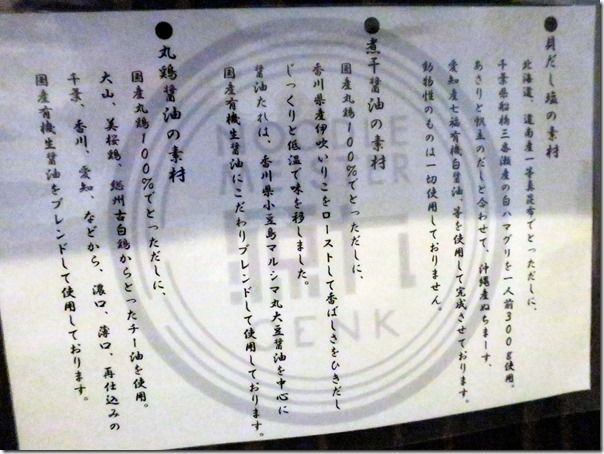 ●貝だし塩の素材
北海道、道南産一等真昆布でとっただしに、
千葉県船橋三番瀬産の白ハマグリを一人前300g使用。
あさりと帆立のだしと合わせて、沖縄産ぬちまーす、
愛知産七福有機白醤油、等を使用して完成させております。
動物性のものは一切使用しておりません。
●煮干醤油の素材
国産丸鶏100%でとっただしに、
香川県産伊吹いりこをローストして香ばしさをひきだし
じっくりと低温で味を移しました。
醤油たれは、香川県小豆島マルシマ丸大豆醤油を中心に
国産有機生醤油にこだわりブレンドして使用しております。
●丸鶏醤油の素材
国産丸鶏100%でとっただしに、
大山、美桜鶏、総州古白鶏からとったチー油を使用。
千葉、香川、愛知、などから、濃口、薄口、再仕込みの
国産有機生醤油をブレンドして使用しております。
NOODLE
MEISTER
GENK